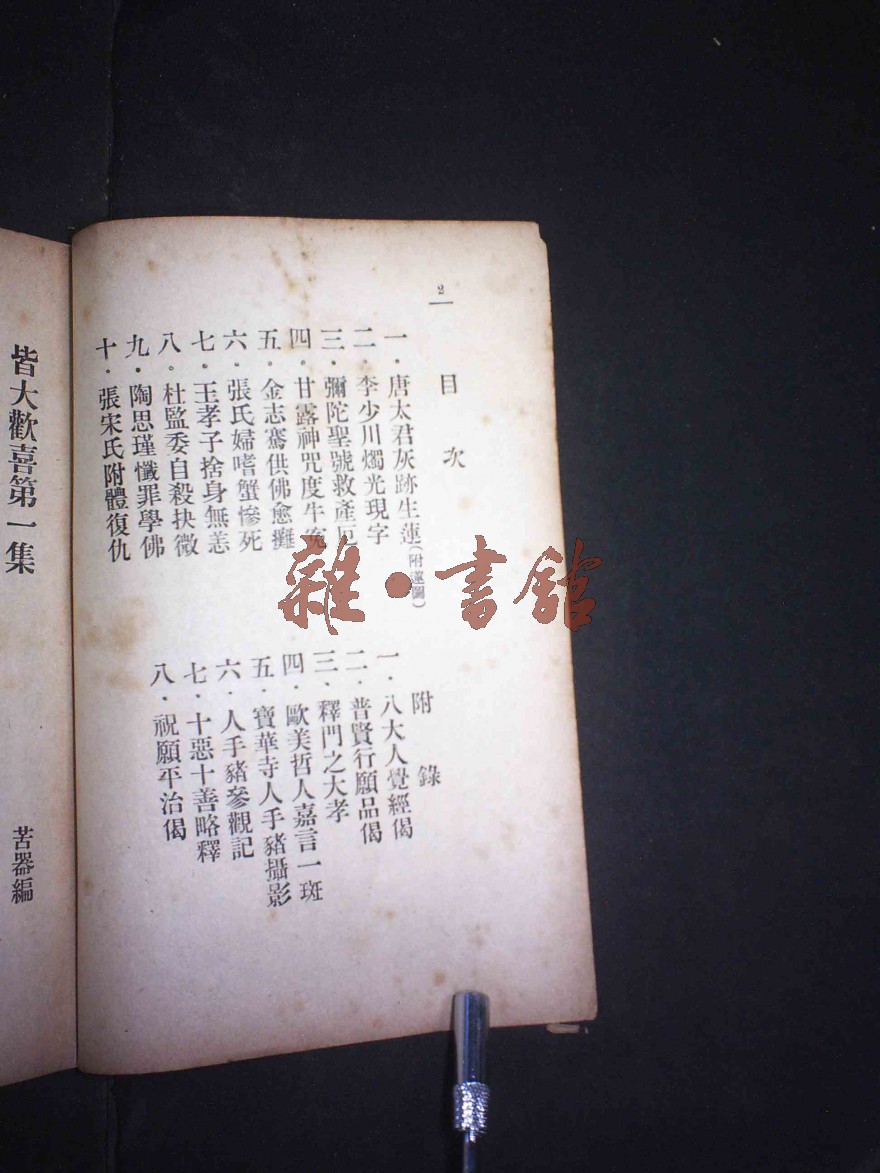 2
目次
一．唐太君灰跡生蓮(附蓮圖)
二．李少川燭光現字
三．彌陀聖號救產厄
四．甘露神咒度牛冤
五．金志騫供佛愈癱
六．張氏婦嗜蟹慘死
七．王孝子捨身無恙
八．杜監委自殺抉微
九．陶思瑾懺罪學佛
十．張宋氏附體復仇
附錄
一．八大人覺經偈
二．普賢行願品偈
三．釋門之大孝
四．歐美哲人嘉言一斑
五．寶華寺人手豬攝影
六．人手豬參觀記
七．十惡十善略釋
八．祝願平治偈
皆大歡喜第一集
苦器編
雜・書館